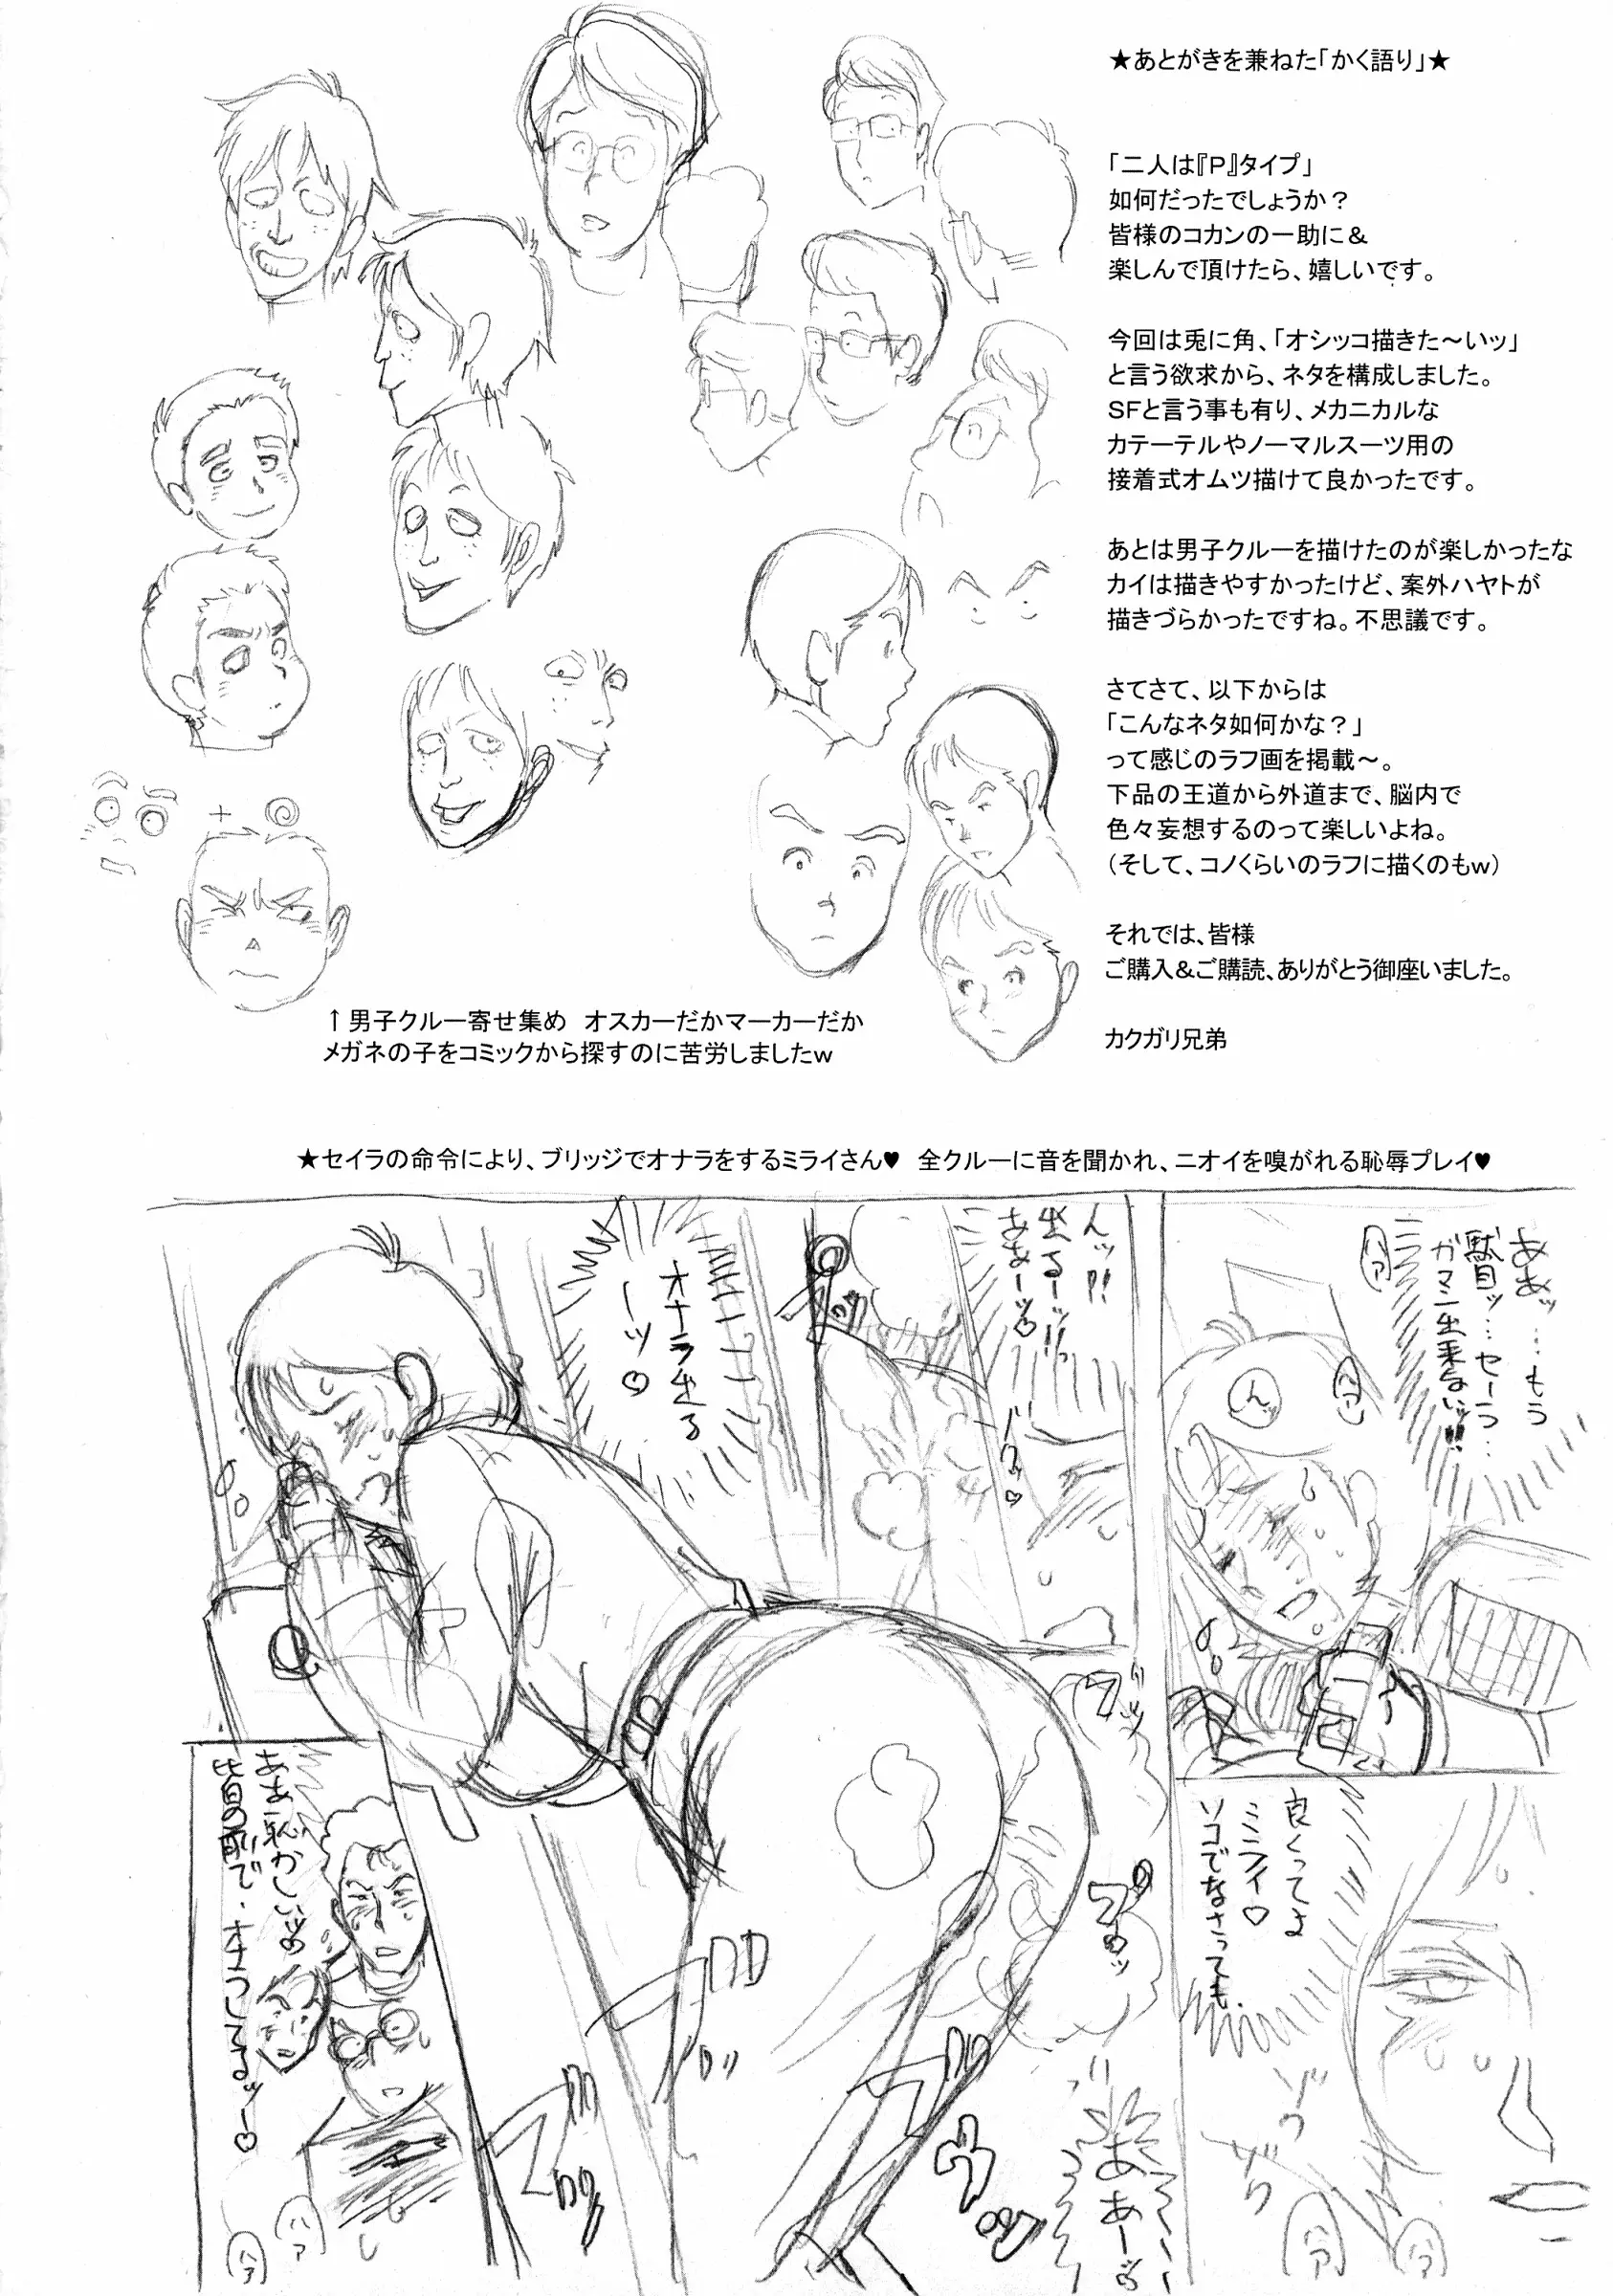 ★あとがきを兼ねた「かく語り」★
「二人は『P』タイプ」
如何だったでしょうか？
皆様のコカンの一助に＆
楽しんで頂けたら、嬉しいです。
今回は兎に角、「オシッコ描きた～いッ」
と言う欲求から、ネタを構成しました。
SFと言う事も有り、メカニカルな
カテーテルやノーマルスーツ用の
接着式オムツ描けて良かったです。
あとは男子クルーを描けたのが楽しかったな
カイは描きやすかったけど、案外ハヤトが
描きづらかったですね。不思議です。
さてさて、以下からは
「こんなネタ如何かな？」
って感じのラフ画を掲載～。
下品の王道から外道まで、脳内で
色々妄想するのって楽しいよね。
（そして、コノくらいのラフに描くのもｗ）
それでは、皆様
ご購入＆ご購読、ありがとう御座いました。
カクガリ兄弟
↑男子クルー寄せ集め　オスカーだかマーカーだか
メガネの子をコミックから探すのに苦労しましたｗ
★セイラの命令により、ブリッジでオナラをするミライさん♥　全クルーに音を聞かれ、ニオイを嗅がれる恥辱プレイ♥
ああッ…もう
駄目ッ…セーラ…
ガマン出来ないッ!!
ハァ
ハァ
んッ
んッ!!
出るーッ!!
ああーッ♡
オナラ出る
ーッ♡
良くってよ
ミライ♡
ソコでなさっても
ああ恥かしいめ
皆の前で・オナラしてるッー♡
ああーッ
ゾク
ゾク
ハァ
ハァ
ハァ
ハァ